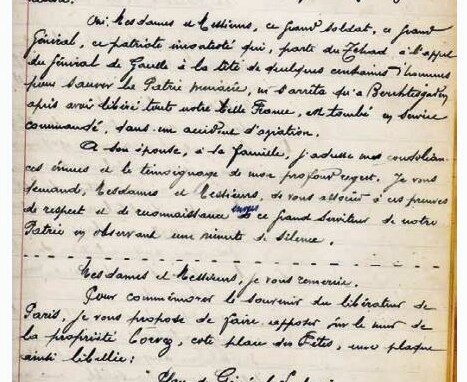 Oui, Mesdames et Messieurs, ce grand soldat, ce grand
Général, ce patriote qui, parti du Tchad à l'appel
du Général de Gaulle à la tête de quelques centaines d'hommes
pour sauver la Patrie menacée, ne s'arrêta qu'à Berchtesgaden
après avoir libéré toute notre Belle France, est tombé en service
commandé, dans un accident d'aviation.
A son épouse, à sa famille, j'adresse mes condoléan-
ces émues et le témoignage de mon profond regret. Je vous
demande, Mesdames et Messieurs, de vous associer à ces preuves
de respect et de reconnaissance envers ce grand serviteur de notre
Patrie en observant une minute de silence.
Mesdames et Messieurs, je vous remercie.
Pour commémorer le souvenir du libérateur de
Paris, je vous propose de faire apposer sur le mur de
la propriété, coté place des Fêtes, une plaque
ainsi libellée: